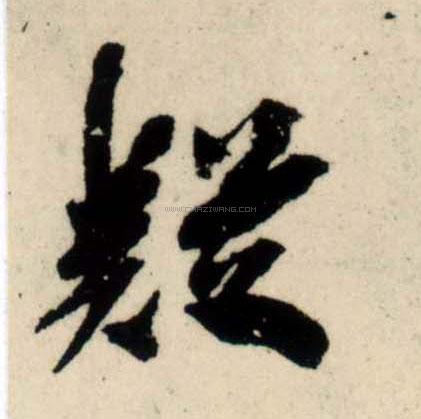 疑
WWW.CHAZIWANG.COM